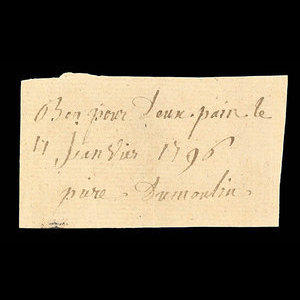 Bon pour Deux pain le
17 Janvier 1796
piere Dumoulin